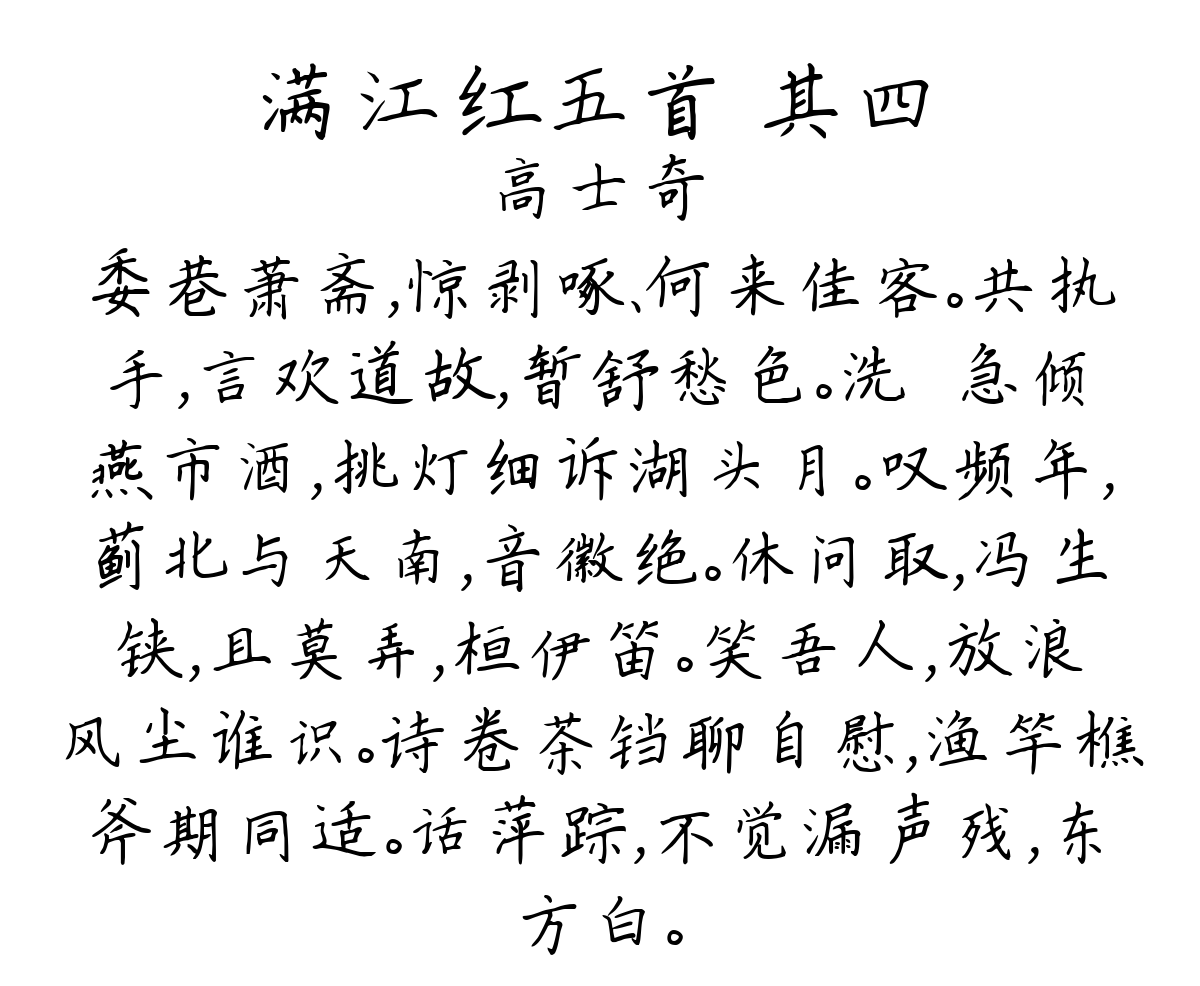 满江红五首 其四
高士奇
委巷萧斋,惊剥啄、何来佳客。共执
手,言欢道故,暂舒愁色。洗 急倾
燕市酒,挑灯细诉湖头月。叹频年,
蓟北与天南,音徽绝。休问取,冯生
铗,且莫弄,桓伊笛。笑吾人,放浪
风尘谁识。诗卷茶铛聊自慰,渔竿樵
斧期同适。话萍踪,不觉漏声残,东
方白。